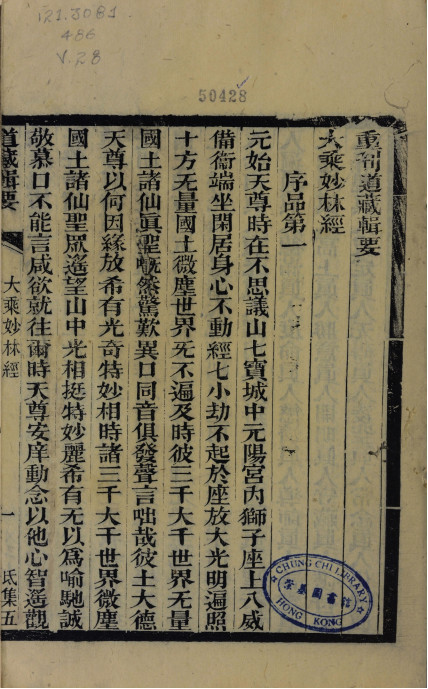 121.3081
486
V.28
50428
重刊道藏輯要
大乘妙林經
序品第一
元始天尊時在不思議山七寶城中元陽宮內獅子座上八威
備衛端坐閑居身心不動經七小劫不起於座放大光明遍照
十方无量國土微塵世界无不遍及時彼三千大千世界无量
國土諸仙眞聖嘅然驚歎異口同音俱發聲言咄哉彼土大德
天尊以何因緣放希有光奇特妙相時諸三千大千世界微塵
國土諸仙聖眾遙望山中光相挺特妙麗希有无以爲喻馳誠
敬慕口不能言咸欲就往爾時天尊安庠動念以他心智遙觀
道藏輯要
大乘妙林經
一
氐集五
CHUNG CHI LIBRARY
崇基圖書館
HONG KONG